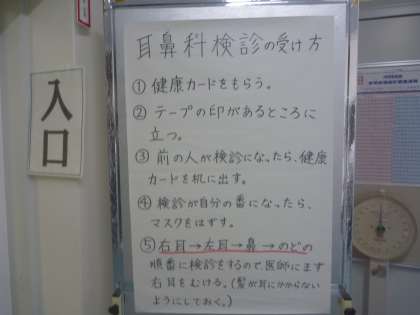 耳鼻科検診の受け方
① 健康カードをもらう。
② テープの印があるところに
立つ。
③ 前の人が検診になったら、健康
カードを机に出す。
④ 検診が自分の番になったら、
マスクをはずす。
⑤ 右耳→左耳→鼻→のどの
順番に検診をするので、医師にまず
右耳をむける。(髪が耳にかからない
ようにしておく。)
入口